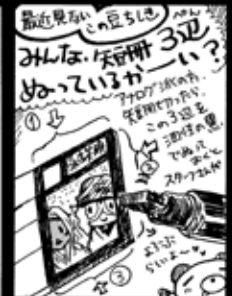 最近見ない
この豆ちしき
みんな、短冊3辺
ぬっているかーい？
アナログ派の方、
短冊もらったら、
この3辺を
油性の黒
でぬって
おくと
スタッフさんが
よろこぶ
らしいよ〜
①
②
③